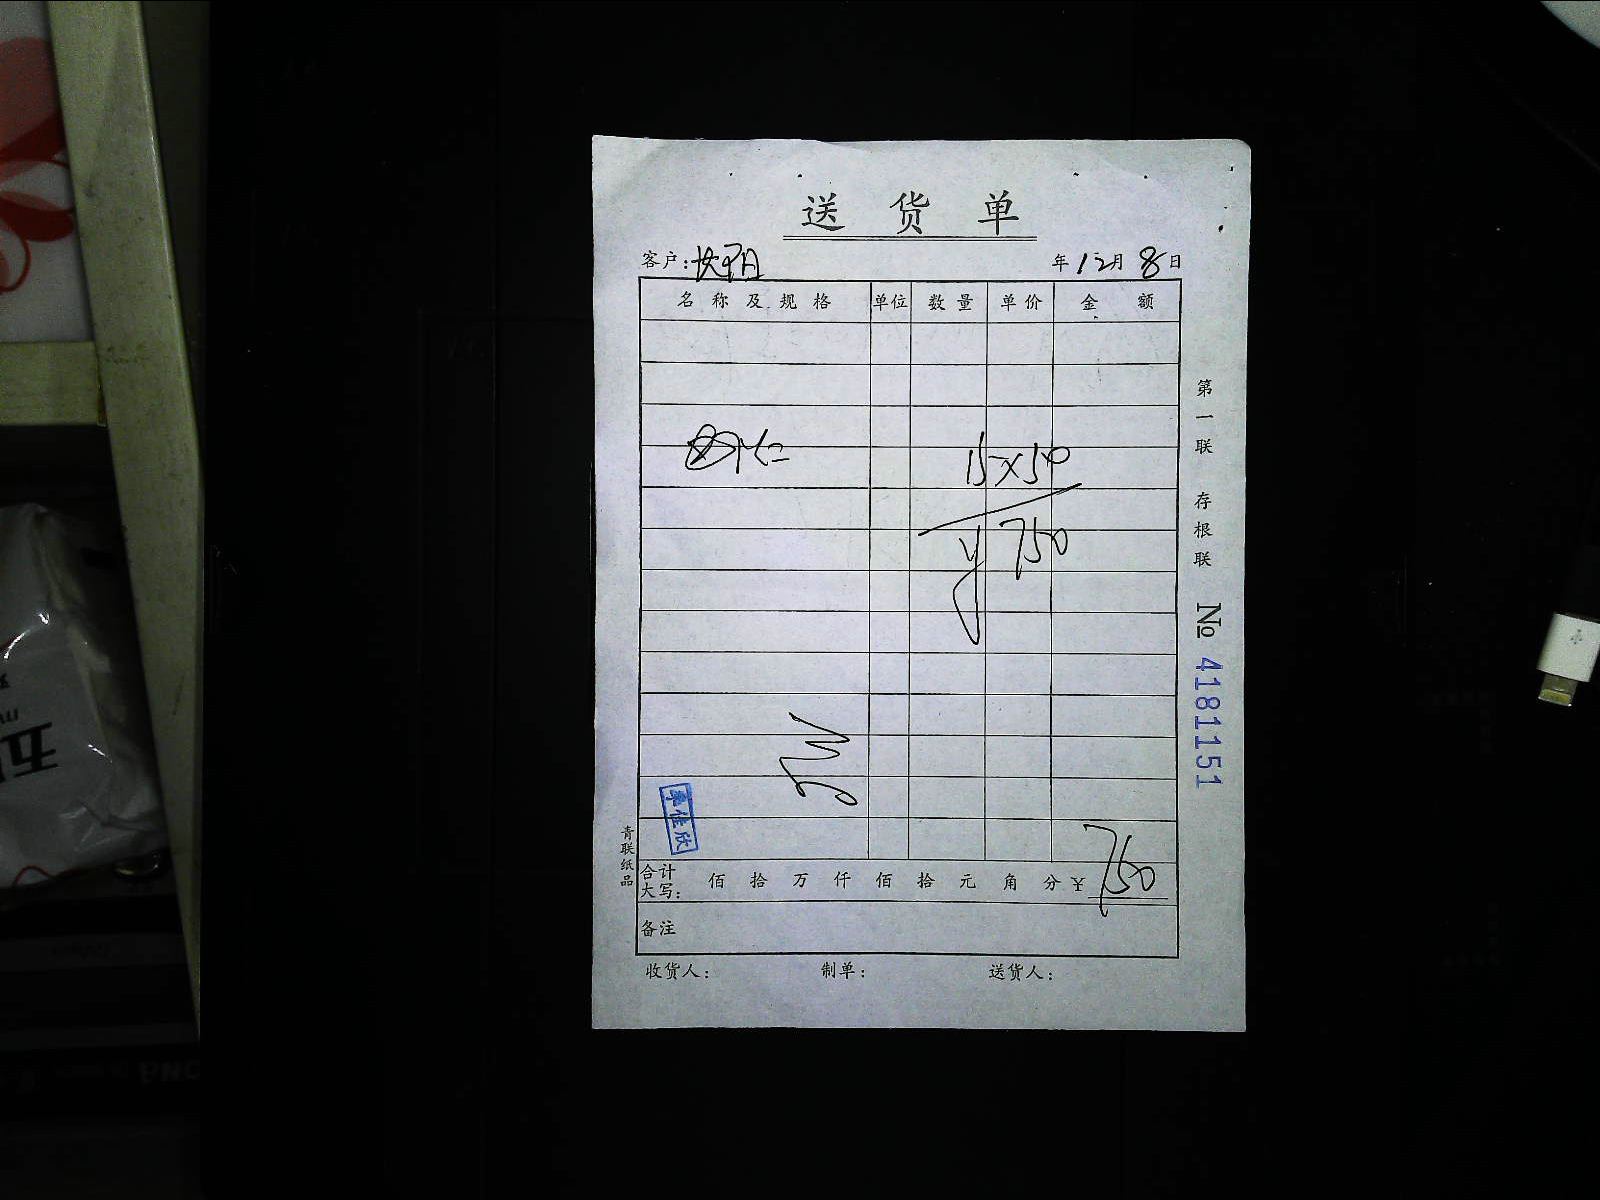 送货单
客户: 年12月8日
名称及规格 单位 数量 单价 金额
15×50
¥750
合计大写: 佰 拾 万 仟 佰 拾 元 角 分 ¥ 750
备注
收货人: 制单: 送货人:
第一联 存根联 № 4181151
青联纸品